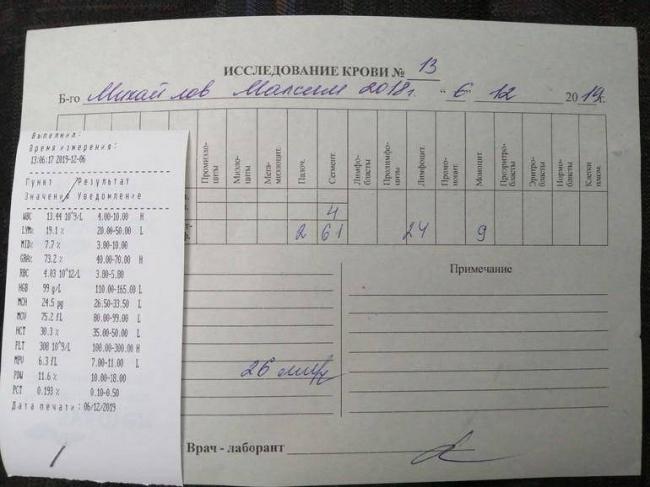 ИССЛЕДОВАНИЕ КРОВИ № 13
Б-го Михайлов Максим 2018г. "6" 12 2019г.
Промиело-
циты
Миело-
циты
Мета-
миелоцит.
Палоч.
Сегмент.
Лимфо-
бласты
Пролимфо-
циты
Лимфоцит.
Промо-
ноцит.
Моноцит.
Проэритро-
бласты
Эритро-
бласты
Нормо-
бласты
Клетки
плазм.
4
2 61 24 9
Примечание
26 мм/ч
Врач - лаборант
Выполнил:
Время измерения:
13:06:17 2019-12-06
Пункт /Результат
Значения Уведомление
WBC 13.44 10^9/L 4.00-10.00 H
LYM% 19.1 % 20.00-50.00 L
MID% 7.7 % 3.00-10.00
GRA% 73.2 % 40.00-70.00 H
RBC 4.03 10^12/L 3.80-5.80
HGB 99 g/L 110.00-165.00 L
MCH 24.5 pg 26.50-33.50 L
MCV 75.2 fL 80.00-99.00 L
HCT 30.3 % 35.00-50.00 L
PLT 308 10^9/L 100.00-300.00 H
MPV 6.3 fL 7.00-11.00 L
PDW 11.6 % 10.00-18.00
PCT 0.193 % 0.10-0.50
Дата печати: 06/12/2019